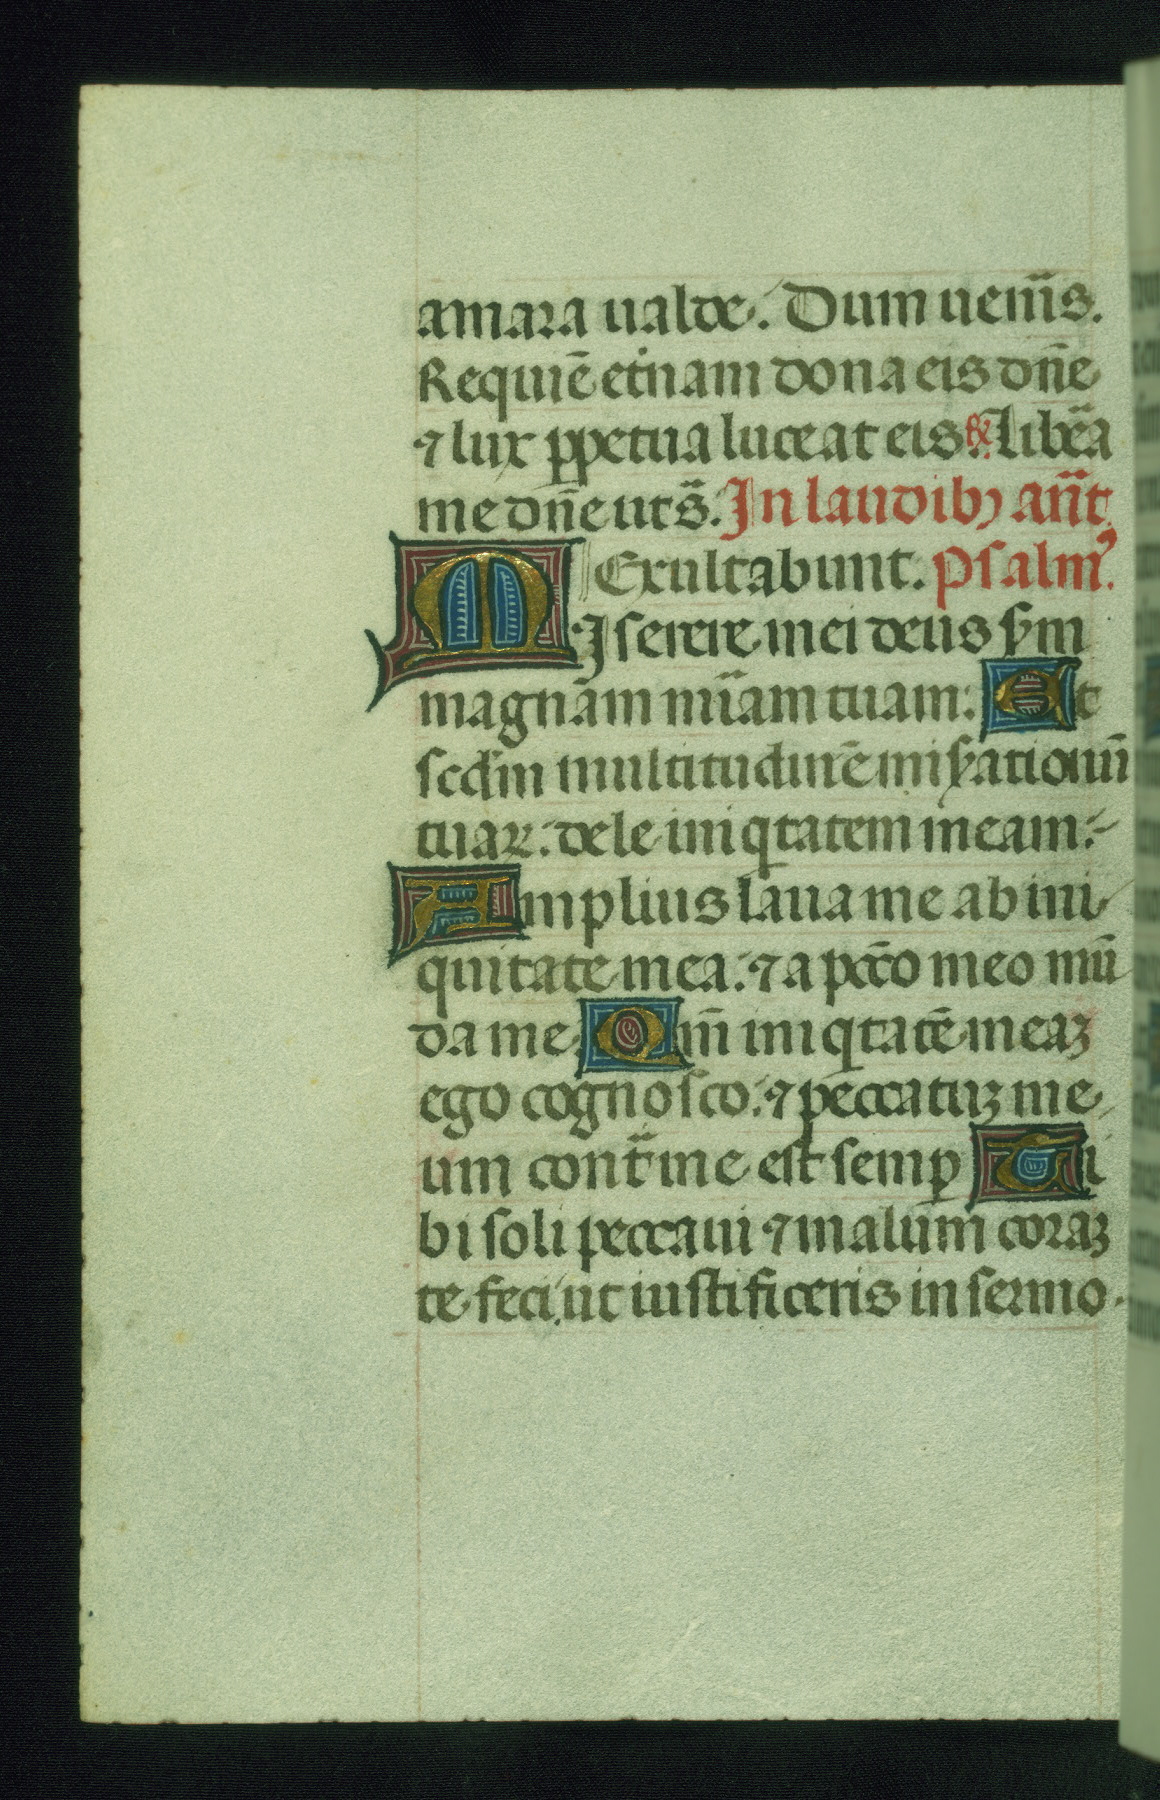 amara ualde. Dum uenis.
Requiē et̾nam dona eis dn̄e
⁊ lux ꝑpetua luceat eis. ℟. Libēa
me dn̄e ut s̄. In laudibꝫ ant̄.
Exultabunt. Psalmꝰ.
MIserere mei deus ẜm
magnam mīam tuam: Et
scd̄m multitudinē miẜationū
tuaꝝ: dele iniqtatem meam.
Amplius laua me ab ini
quitate mea: ⁊ a pctō meo mū
da me. Qm̄ iniqtatē meaꝫ
ego cognosco: ⁊ peccatuꝫ me
um cont̄ me est semꝑ Ti
bi soli peccaui ⁊ malum coraꝫ
te feci: ut iustificeris in sermo